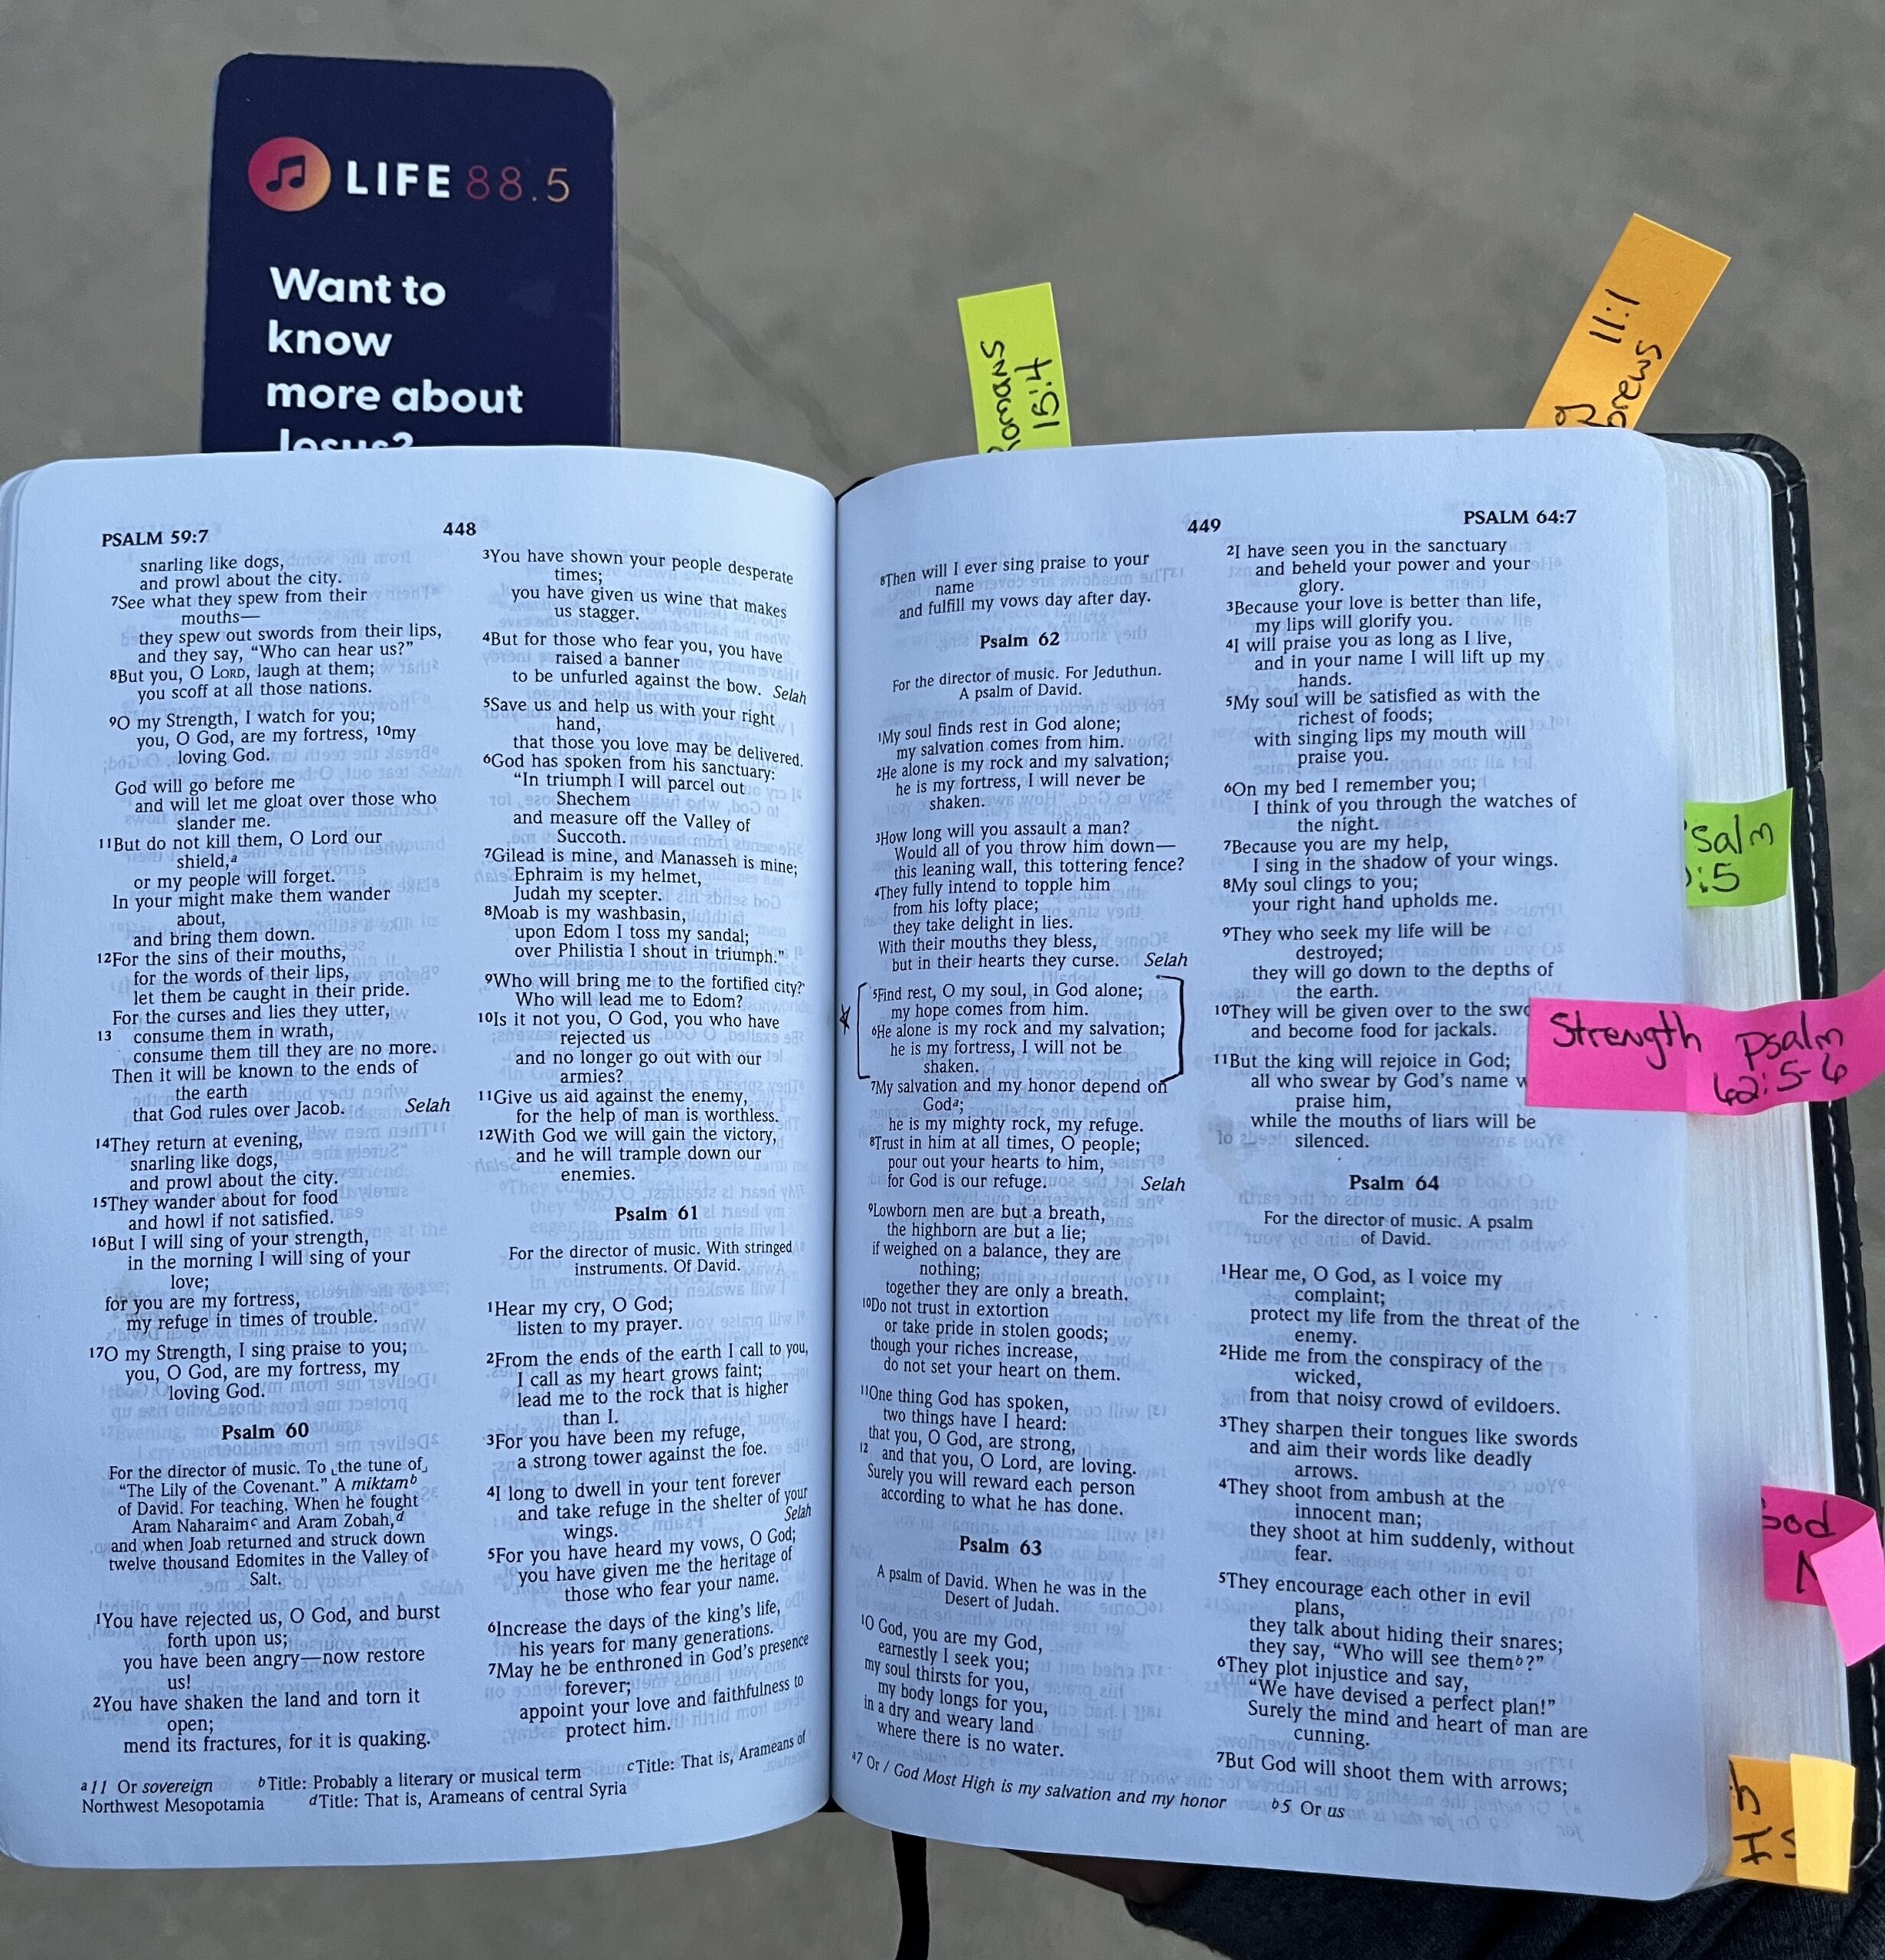 LIFE 88.5
Want to
know
more about
Jesus?
15:4
11:1
PSALM 59:7
448
snarling like dogs,
and prowl about the city.
7See what they spew from their
mouths—
they spew out swords from their lips,
and they say, “Who can hear us?”
8But you, O LORD, laugh at them;
you scoff at all those nations.
9O my Strength, I watch for you;
you, O God, are my fortress, 10my
loving God.
God will go before me
and will let me gloat over those who
slander me.
11But do not kill them, O Lord our
shield,a
or my people will forget.
In your might make them wander
about,
and bring them down.
12For the sins of their mouths,
for the words of their lips,
let them be caught in their pride.
For the curses and lies they utter,
13 consume them in wrath,
consume them till they are no more.
Then it will be known to the ends of
the earth
that God rules over Jacob. Selah
14They return at evening,
snarling like dogs,
and prowl about the city.
15They wander about for food
and howl if not satisfied.
16But I will sing of your strength,
in the morning I will sing of your
love;
for you are my fortress,
my refuge in times of trouble.
17O my Strength, I sing praise to you;
you, O God, are my fortress, my
loving God.
Psalm 60
For the director of music. To ⌞the tune of⌟
“The Lily of the Covenant.” A miktamb
of David. For teaching. When he fought
Aram Naharaimc and Aram Zobah,d
and when Joab returned and struck down
twelve thousand Edomites in the Valley of
Salt.
1You have rejected us, O God, and burst
forth upon us;
you have been angry—now restore
us!
2You have shaken the land and torn it
open;
mend its fractures, for it is quaking.
3You have shown your people desperate
times;
you have given us wine that makes
us stagger.
4But for those who fear you, you have
raised a banner
to be unfurled against the bow. Selah
5Save us and help us with your right
hand,
that those you love may be delivered.
6God has spoken from his sanctuary:
“In triumph I will parcel out
Shechem
and measure off the Valley of
Succoth.
7Gilead is mine, and Manasseh is mine;
Ephraim is my helmet,
Judah my scepter.
8Moab is my washbasin,
upon Edom I toss my sandal;
over Philistia I shout in triumph.”
9Who will bring me to the fortified city?
Who will lead me to Edom?
10Is it not you, O God, you who have
rejected us
and no longer go out with our
armies?
11Give us aid against the enemy,
for the help of man is worthless.
12With God we will gain the victory,
and he will trample down our
enemies.
Psalm 61
For the director of music. With stringed
instruments. Of David.
1Hear my cry, O God;
listen to my prayer.
2From the ends of the earth I call to you,
I call as my heart grows faint;
lead me to the rock that is higher
than I.
3For you have been my refuge,
a strong tower against the foe.
4I long to dwell in your tent forever
and take refuge in the shelter of your
wings. Selah
5For you have heard my vows, O God;
you have given me the heritage of
those who fear your name.
6Increase the days of the king’s life,
his years for many generations.
7May he be enthroned in God’s presence
forever;
appoint your love and faithfulness to
protect him.
a11 Or sovereign bTitle: Probably a literary or musical term cTitle: That is, Arameans of
Northwest Mesopotamia dTitle: That is, Arameans of central Syria
449
PSALM 64:7
8Then will I ever sing praise to your
name
and fulfill my vows day after day.
Psalm 62
For the director of music. For Jeduthun.
A psalm of David.
1My soul finds rest in God alone;
my salvation comes from him.
2He alone is my rock and my salvation;
he is my fortress, I will never be
shaken.
3How long will you assault a man?
Would all of you throw him down—
this leaning wall, this tottering fence?
4They fully intend to topple him
from his lofty place;
they take delight in lies.
With their mouths they bless,
but in their hearts they curse. Selah
5Find rest, O my soul, in God alone;
my hope comes from him.
6He alone is my rock and my salvation;
he is my fortress, I will not be
shaken.
7My salvation and my honor depend on
Goda;
he is my mighty rock, my refuge.
8Trust in him at all times, O people;
pour out your hearts to him,
for God is our refuge. Selah
9Lowborn men are but a breath,
the highborn are but a lie;
if weighed on a balance, they are
nothing;
together they are only a breath.
10Do not trust in extortion
or take pride in stolen goods;
though your riches increase,
do not set your heart on them.
11One thing God has spoken,
two things have I heard:
that you, O God, are strong,
12 and that you, O Lord, are loving.
Surely you will reward each person
according to what he has done.
Psalm 63
A psalm of David. When he was in the
Desert of Judah.
1O God, you are my God,
earnestly I seek you;
my soul thirsts for you,
my body longs for you,
in a dry and weary land
where there is no water.
2I have seen you in the sanctuary
and beheld your power and your
glory.
3Because your love is better than life,
my lips will glorify you.
4I will praise you as long as I live,
and in your name I will lift up my
hands.
5My soul will be satisfied as with the
richest of foods;
with singing lips my mouth will
praise you.
6On my bed I remember you;
I think of you through the watches of
the night.
7Because you are my help,
I sing in the shadow of your wings.
8My soul clings to you;
your right hand upholds me.
9They who seek my life will be
destroyed;
they will go down to the depths of
the earth.
10They will be given over to the swo
and become food for jackals.
11But the king will rejoice in God;
all who swear by God’s name w
praise him,
while the mouths of liars will be
silenced.
Psalm 64
For the director of music. A psalm
of David.
1Hear me, O God, as I voice my
complaint;
protect my life from the threat of the
enemy.
2Hide me from the conspiracy of the
wicked,
from that noisy crowd of evildoers.
3They sharpen their tongues like swords
and aim their words like deadly
arrows.
4They shoot from ambush at the
innocent man;
they shoot at him suddenly, without
fear.
5They encourage each other in evil
plans,
they talk about hiding their snares;
they say, “Who will see themb?”
6They plot injustice and say,
“We have devised a perfect plan!”
Surely the mind and heart of man are
cunning.
7But God will shoot them with arrows;
a7 Or / God Most High is my salvation and my honor b5 Or us
salm
:5
Strength Psalm
62:5-6
God